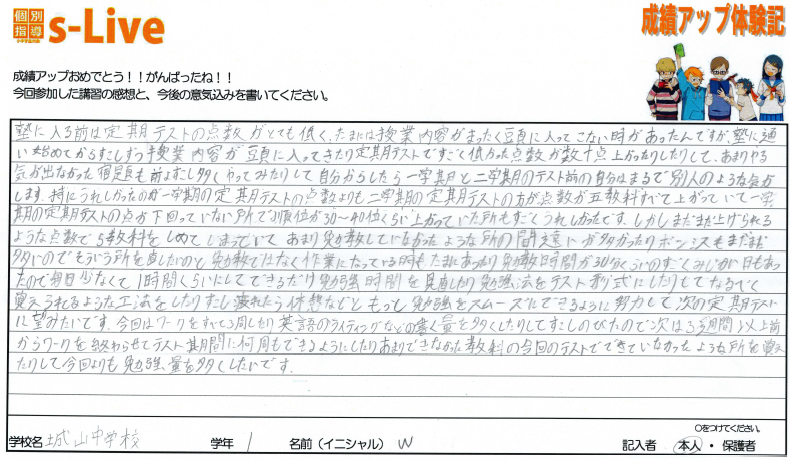 個別指導 s-Live
小中学生対象
成績アップ体験記
成績アップおめでとう！！がんばったね！！
今回参加した講習の感想と、今後の意気込みを書いてください。
塾に入る前は定期テストの点数がとても低く、たまには授業内容がまったく頭に入ってこない時があったんですが、塾に通
い始めてからすこしずつ授業内容が頭に入ってきたり定期テストですごく低かった点数が数十点上がったりしたりして、あまりやる
気が出なかった宿題も前よりすこし多くやってみたりして自分からしたら一学期と二学期のテスト前の自分はまるで別人のような気が
します。特にうれしかったのが一学期の定期テストの点数よりも二学期の定期テストの方が点数が五教科すべて上がっていて一学
期の定期テストの点が下回っていない所で順位が30〜40位くらい上がっていた所もすごくうれしかったです。しかしまだまだ上げられる
ような点数で5教科をしめてしまっていて、あまり勉強していなかったような所の間違いが多かったりポンミスもまだまだ
多いのでそういう所を直したいのと勉強ではなく作業になっている時もたまにあったり勉強時間が30分くらいのすごくみじかい日もあっ
たので毎日少なくて1時間くらいにしてできるだけ勉強時間を見直したり勉強法をテスト形式にしたりしてなるべく
覚えられるような工夫をしたりすこし疲れたら休憩などともっと勉強をスムーズにできるように努力して次の定期テスト
に望みたいです。今回はワークをすべて3周したり英語のライティングなどの書く量を多くしたりしてすこしのびたので次は3週間以上前
からワークを終わらせてテスト期間に何周もできるようにしたりあまりできなかった教科の今回のテストでできていなかったような所を覚え
たりして今回よりも勉強量を多くしたいです。
○をつけてください。
学校名 城山中学校 学年 1 名前（イニシャル） W 記入者 本人・保護者